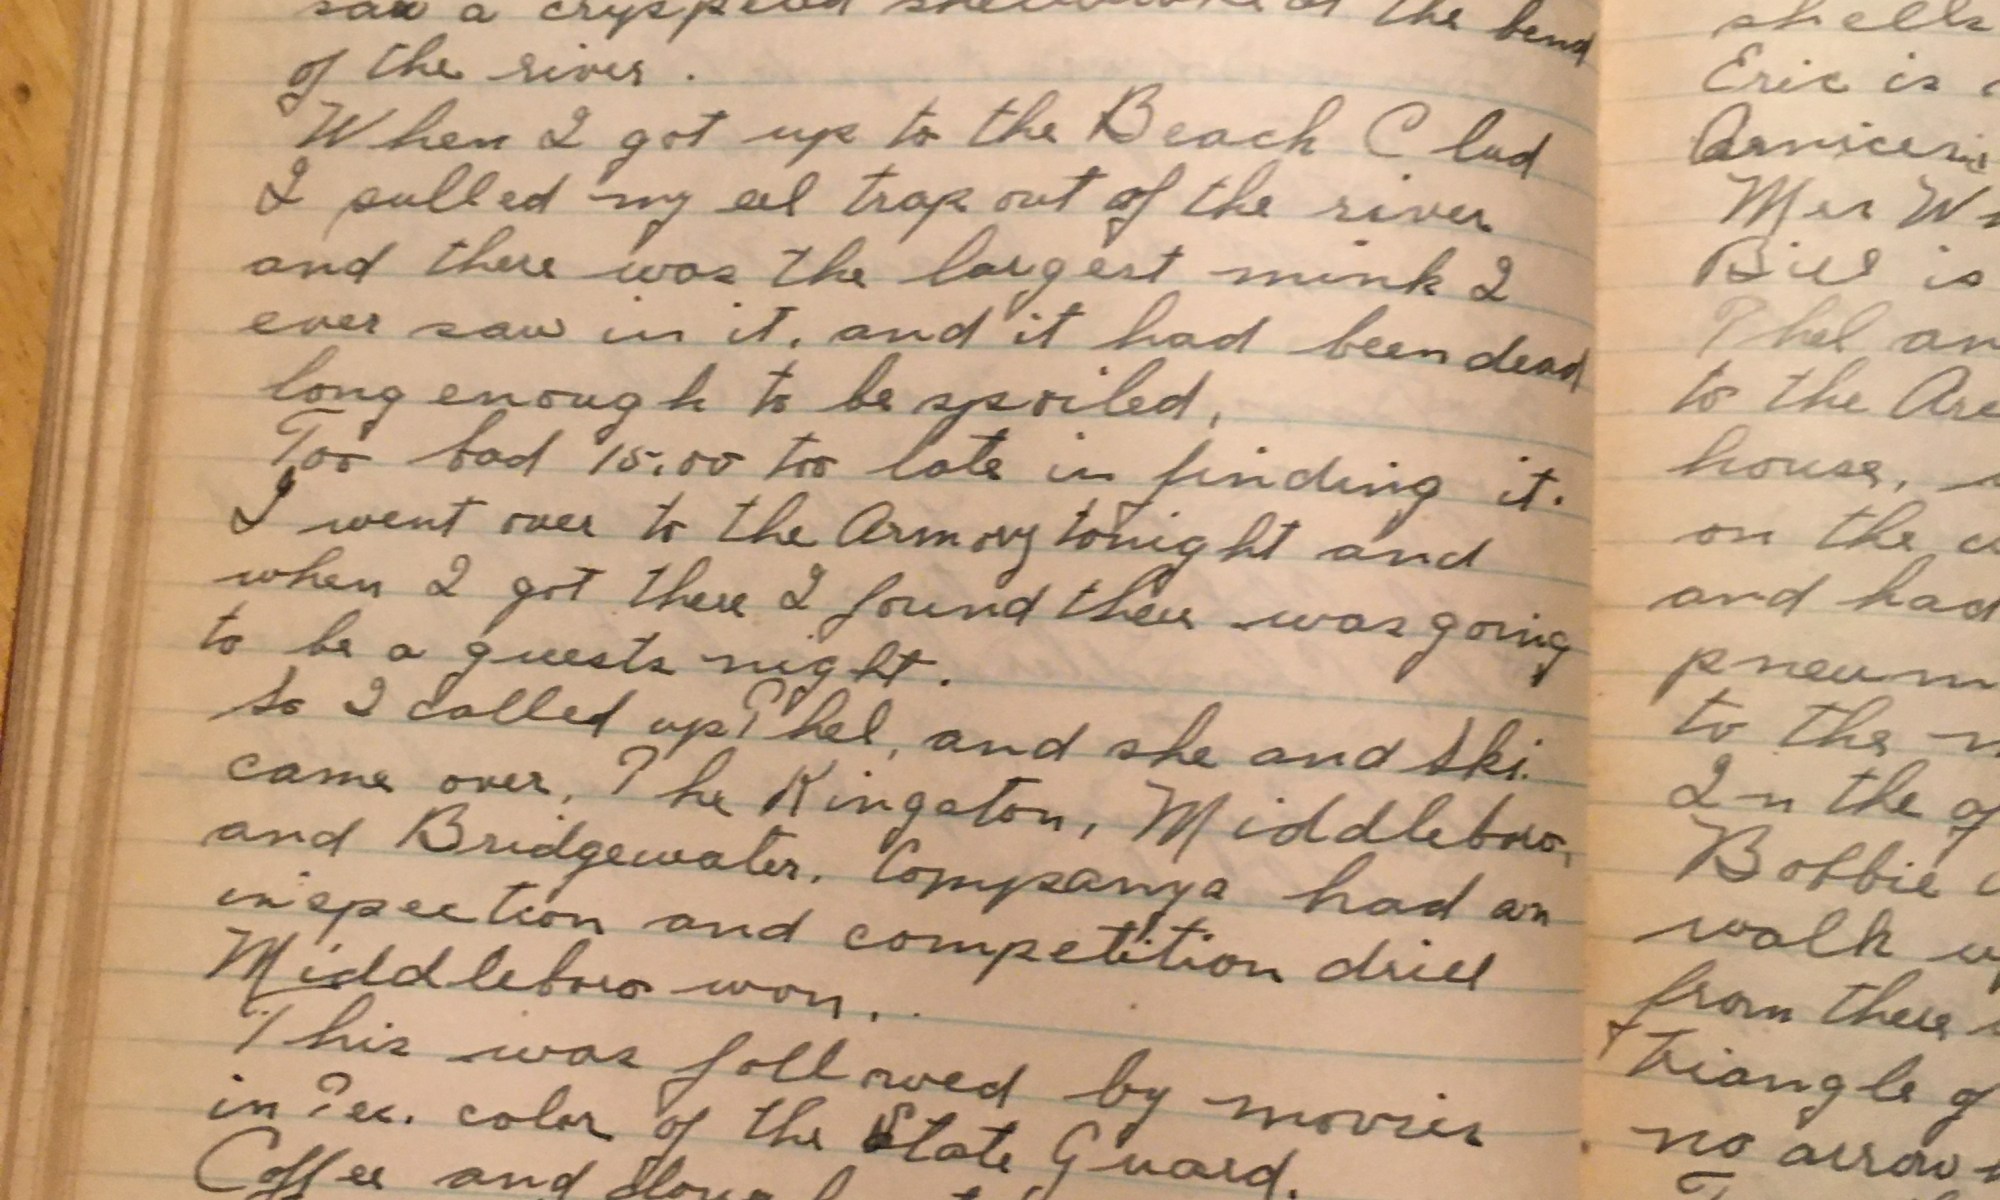 saw a
the bend
of the river.
When I got up to the Beach Club
I pulled my eel trap out of the river
and there was the largest mink I
ever saw in it, and it had been dead
long enough to be spoiled,
Too bad 15.00 too late in finding it.
I went over to the Armory tonight and
when I got there I found there was going
to be a guests night.
So I called up Thel, and she and Ski
came over, The Kingston, Middleboro,
and Bridgewater. Companys had an
inspection and competition drill
Middleboro won.
This was followed by movies
in Tec. color of the State Guard.
Coffee and
shells
Eric is
Mer
Bill is
Thel an
to the
house,
on the
and had
pneum
to the
In the
Bobbie
walk
from there
triangle
no arrow